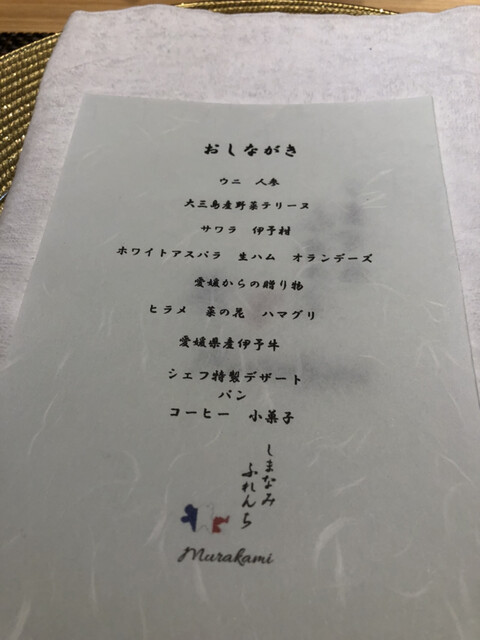 おしながき
ウニ 人参
大三島産野菜テリーヌ
サワラ 伊予柑
ホワイトアスパラ 生ハム オランデーズ
愛媛からの贈り物
ヒラメ 菜の花 ハマグリ
愛媛県産伊予牛
シェフ特製デザート
パン
コーヒー 小菓子
しまなみ
ふれんち
Murakami